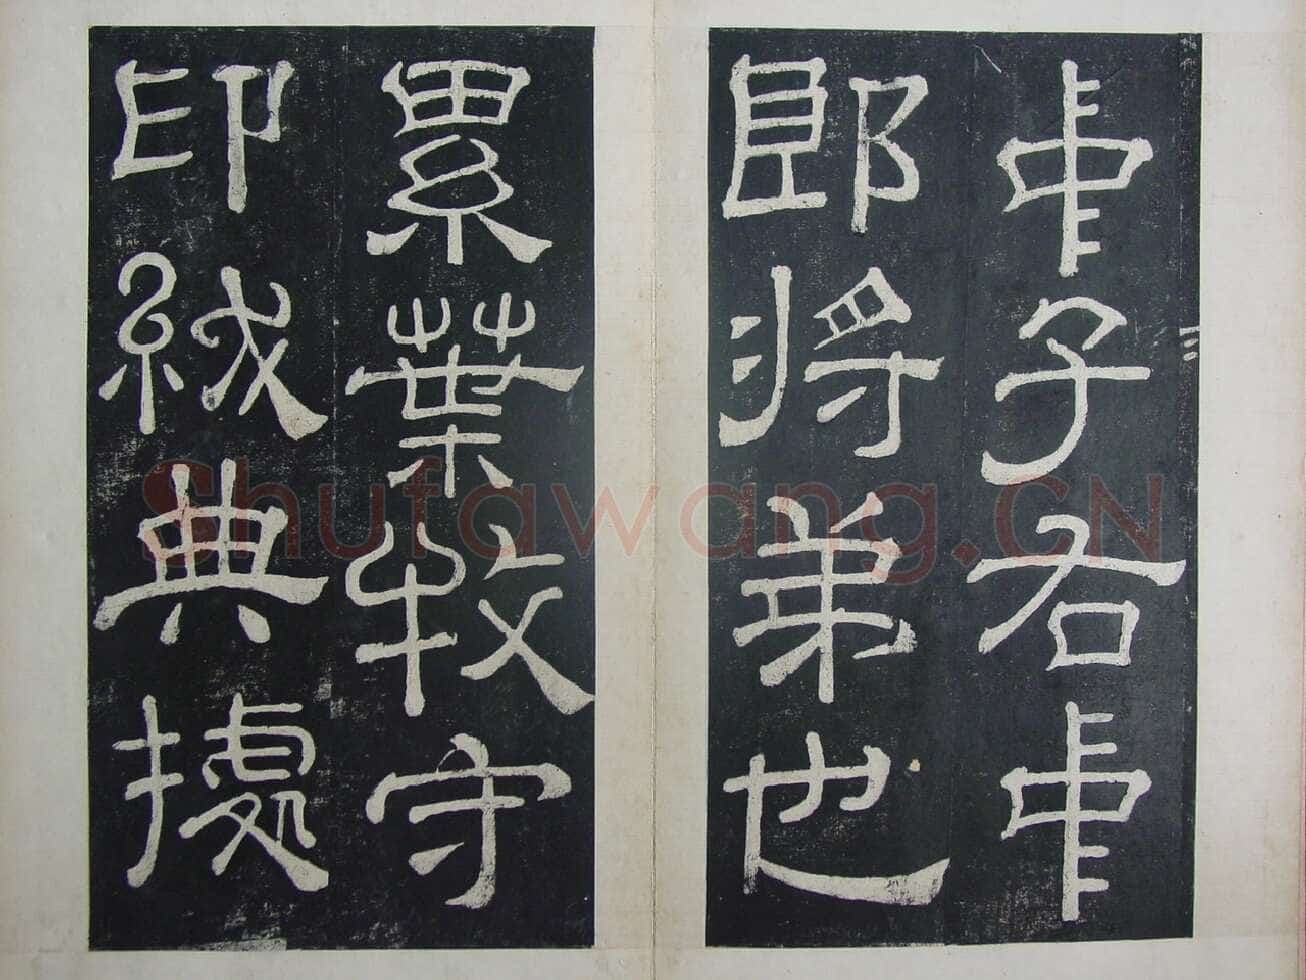 中子右中
郎將弟也
累葉牧守
印紱典據
Shufawang.CN